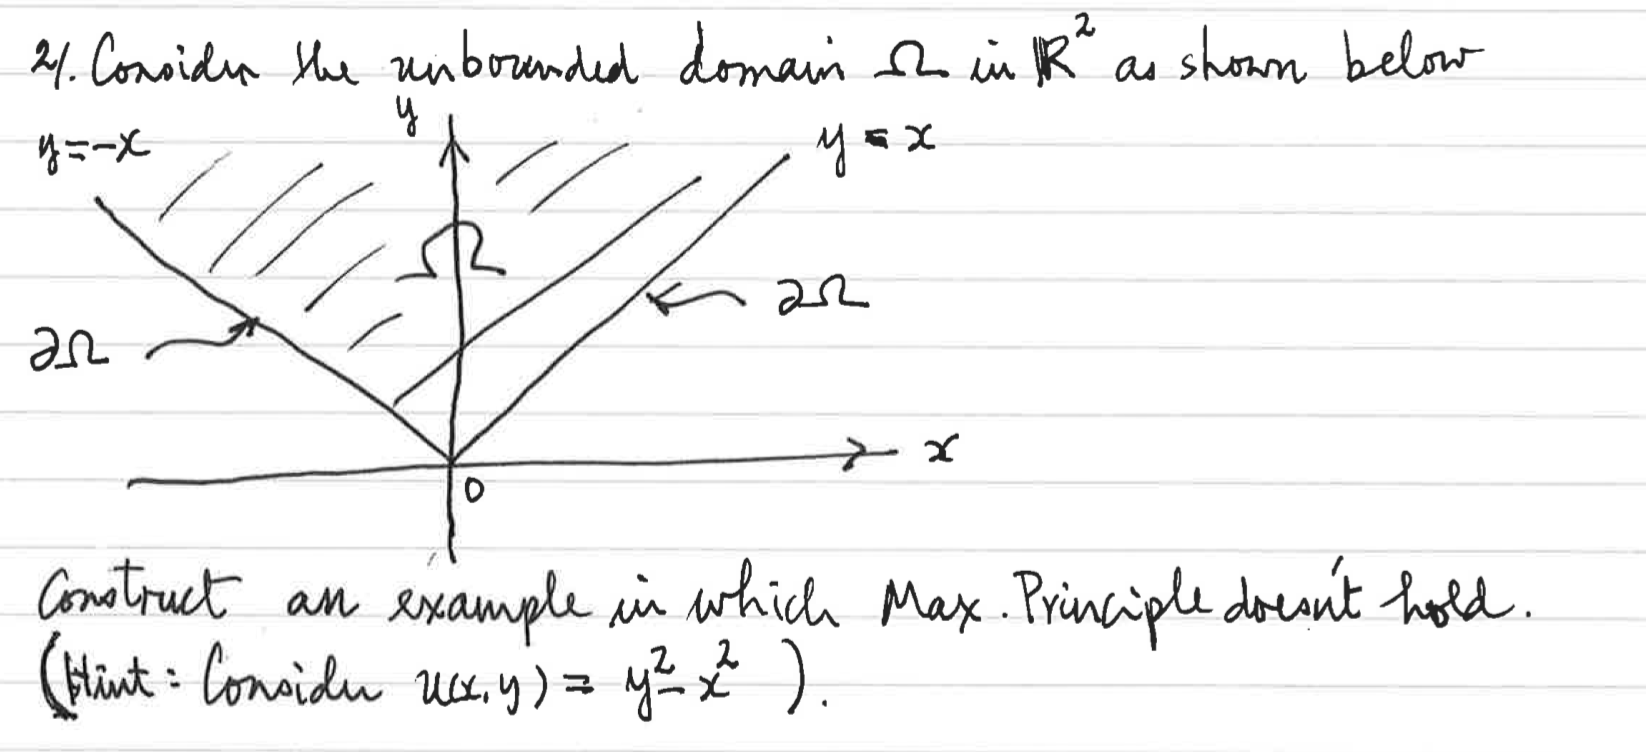 2/. Consider the unbounded domain Ω in ℝ² as shown below
y
y=-x
y = x
Ω
∂Ω
∂Ω
x
0
Construct an example in which Max. Principle doesn't hold.
(Hint: Consider u(x,y) = y² - x²).